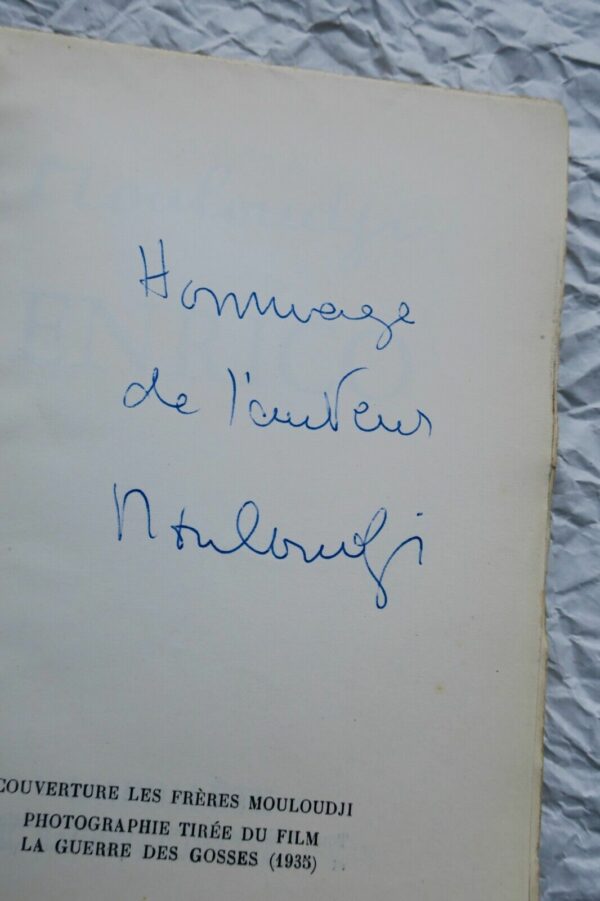 Mouloudji
ENRICO
Hommage
de l'auteur
Mouloudji
COUVERTURE LES FRÈRES MOULOUDJI
PHOTOGRAPHIE TIRÉE DU FILM
LA GUERRE DES GOSSES (1935)